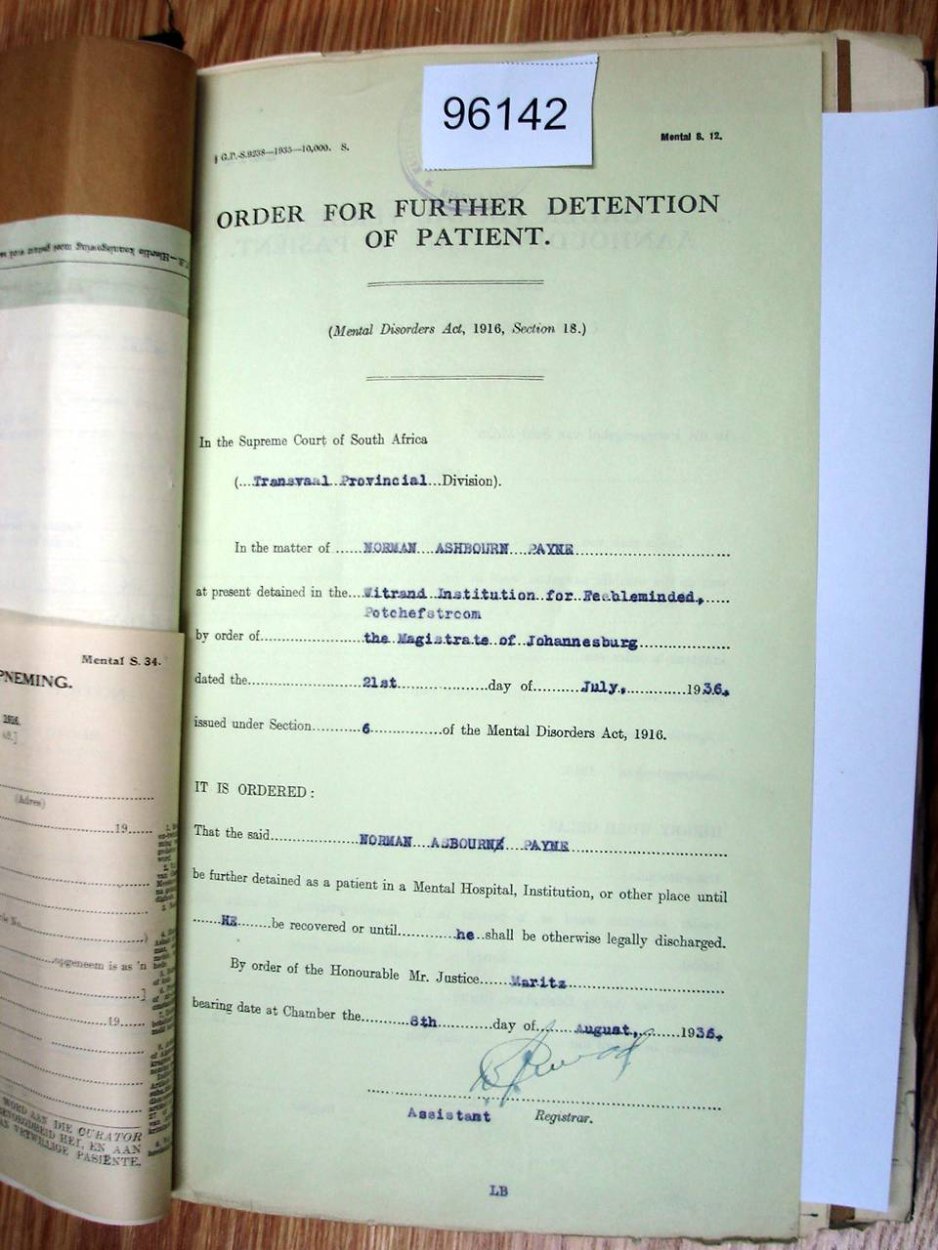 96142
G.P.-S.9238—1935—10,000. S.
Mental S. 12.
ORDER FOR FURTHER DETENTION
OF PATIENT.
(Mental Disorders Act, 1916, Section 18.)
In the Supreme Court of South Africa
(...Transvaal..Provincial...Division).
In the matter of ......NORMAN...ASHBOURN...PAYNE
at present detained in the...Witrand..Institution..for..Feebleminded,
Potchefstroom
by order of the..Magistrate..of..Johannesburg
dated the 21st day of July, 1936.
issued under Section 6 of the Mental Disorders Act, 1916.
IT IS ORDERED:
That the said NORMAN...ASBOURN...PAYNE
be further detained as a patient in a Mental Hospital, Institution, or other place until
HE be recovered or until he shall be otherwise legally discharged.
By order of the Honourable Mr. Justice Maritz
bearing date at Chamber the 8th day of August, 1936.
Assistant Registrar.
LB
Mental S. 34.
PNEMING.
1916.
(Adres)
19
opgeneem is as 'n
19
WORD AAN DIE CURATOR
HEI, EN AAN
PASIËNTE.